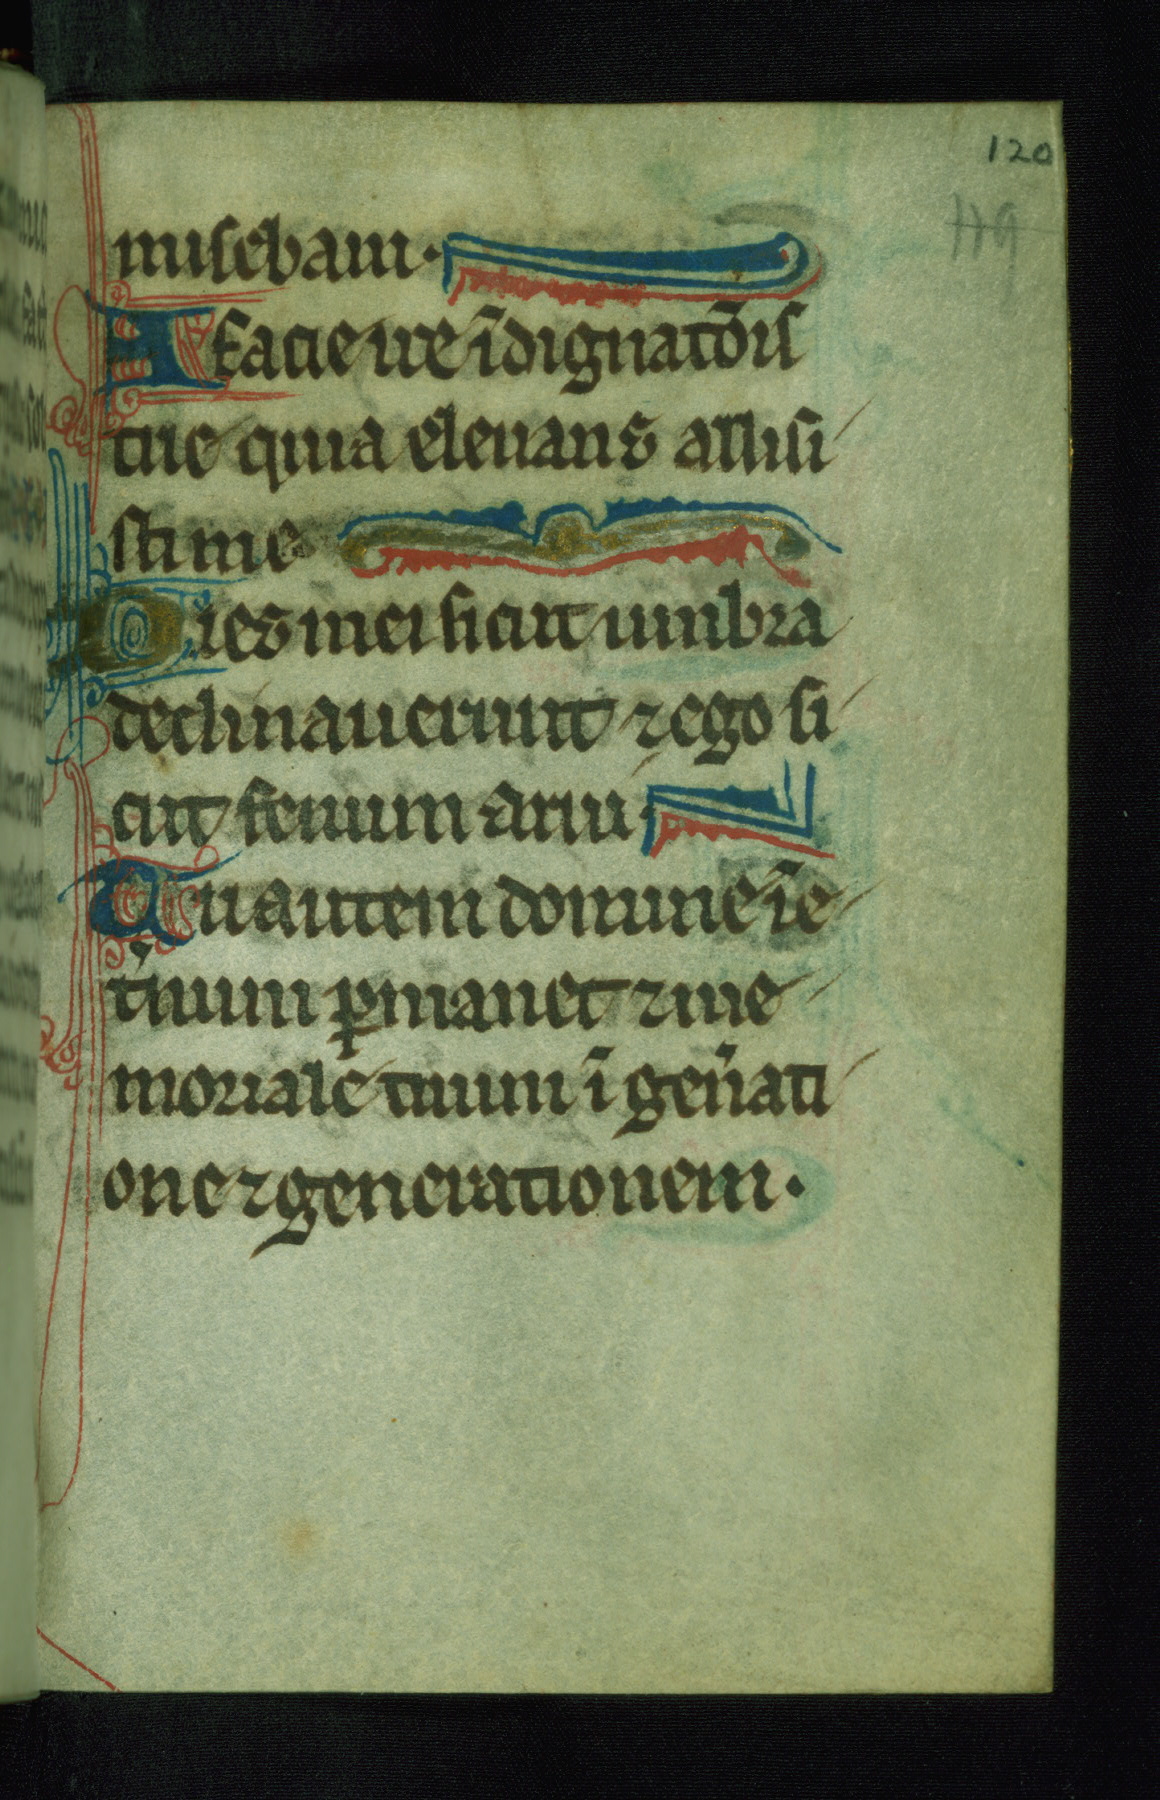 120
119
miscebam·
A facie ire ĩdignatõis
tue quia elevans allisi
sti me
Dies mei sicut umbra
declinaverunt ⁊ ego si
cut fenum arui·
Tu autem domine ĩ e
t̾num ꝑmanet ⁊ me
moriale tuum ĩ gen̾ati
one ⁊ generationem·